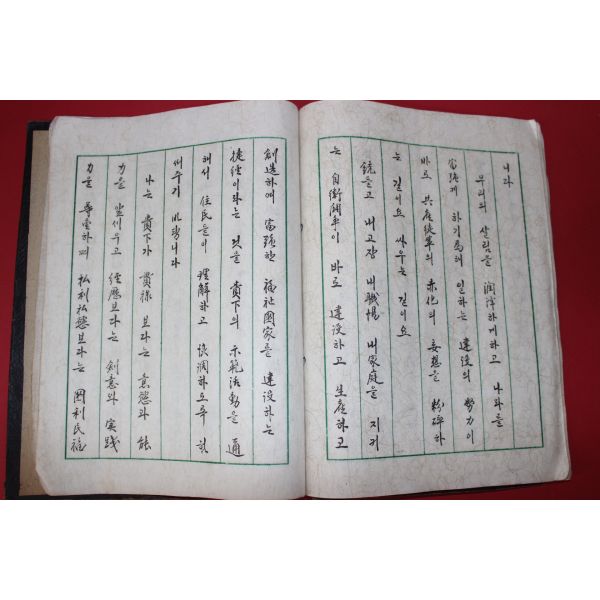 니다
우리의 살림을 潤澤하게하고 나라를
富强케 하기爲해 일하는 建設의 努力이
바로 共産徒輩의 赤化의 妄想을 粉碎하
는 길이요 싸우는 길이요
銃들고 내고장 내職場 내家庭을 지키
는 自衛鬪爭이 바로 建設하고 生産하고
創造하여 富强한 福祉國家를 建設하는
捷徑이라는 것을 貴下의 示範活動을 通
해서 住民들이 理解하고 協調하도록 하
여주기 바랍니다
나는 貴下가 貫祿 보다는 意慾과 能
力을 앞세우고 經歷보다는 創意와 實踐
力을 尊重하며 私利私慾보다는 國利民福